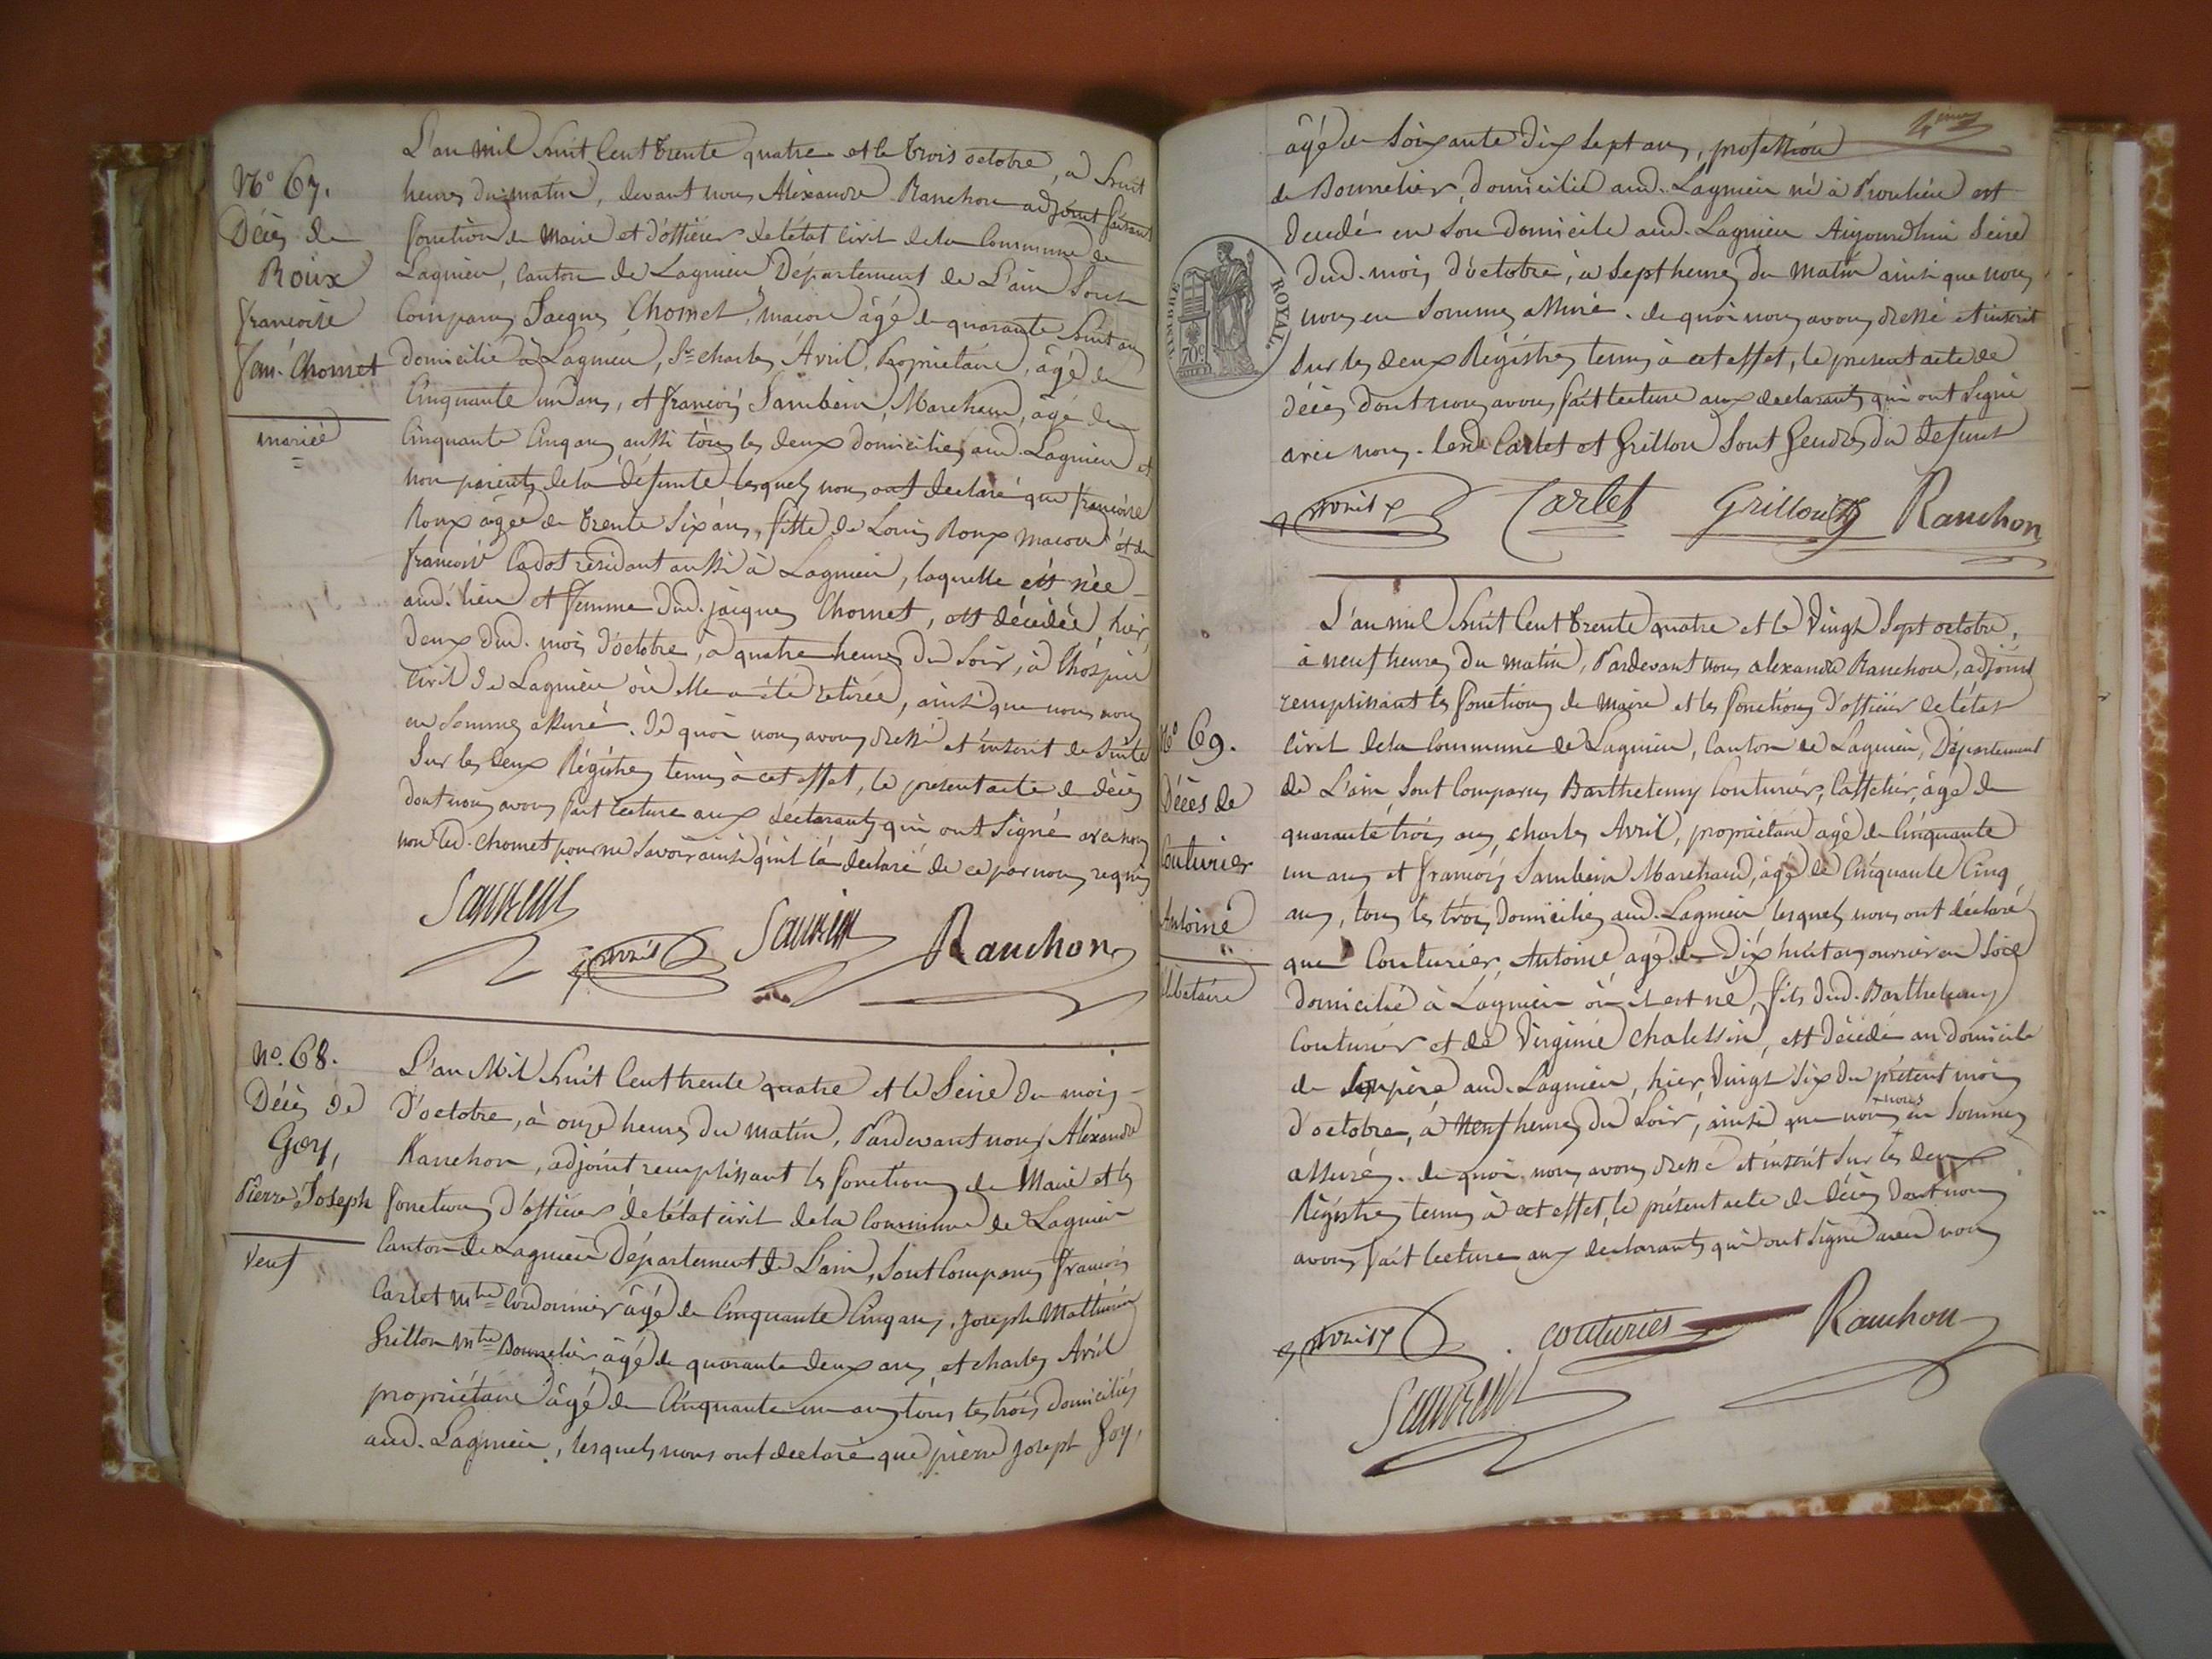 N° 67.
Décès de
Roux
françoise
fem. Chomet
mariée
L'an mil huit Cent trente quatre et le trois octobre, à huit
heures du matin, devant nous Alexandre Ranchon adjoint faisant
fonction de Maire et d'officier de l'état Civil de la Commune de
Lagnieu, Canton de Lagnieu Département de L'ain Sont
Comparus Jacques Chomet, macon âgé de quarante huit ans
domicilié à Lagnieu, Sr charles Avril, Propriétaire, âgé de
Cinquante un ans, et françois Sambein Marchand, âgé de
Cinquante Cinq ans, aussi tous les deux domiciliés aud. Lagnieu et
non parents de la défunte lesquels nous ont declaré que françoise
Roux agée de trente Six ans, fille de Louis Roux macon et de
françoise Cadot résidant aussi à Lagnieu, laquelle est née
aud. lieu et femme dud. jacques Chomet, est décédée, hier
deux dud. mois d'octobre, à quatre heures du Soir, à l'hospice
Civil de Lagnieu où elle a été retirée, ainsi que nous nous
en Sommes assuré. De quoi nous avons dressé et inscrit de Suite
Sur les deux Régistres tenus à cet effet, le présent acte de décès
dont nous avons fait lecture aux déclarants qui ont Signé avec nous
non led. Chomet pour ne Savoir ainsi qu'il l'a déclaré de ce par nous requis
Avril Ranchon
N°. 68.
Décès de
Goy,
Pierre Joseph
Veuf
L'an Mil huit Cent trente quatre et le Seize du mois
d'octobre, à onze heures du matin, Pardevant nous Alexandre
Ranchon, adjoint remplissant les fonctions de Maire et les
fonctions d'officier de l'état civil de la Commune de Lagnieu
Canton de Lagnieu Département de L'ain, Sont Comparus françois
Carlet mtre Cordonnier âgé de Cinquante Cinq ans, Joseph Mathurin
Grillon mtre Bourrelier, âgé de quarante deux ans, et charles Avril
propriétaire âgé de Cinquante un ans tous les trois domiciliés
aud. Lagnieu, lesquels nous ont declaré que pierre joseph Goy,
âgé de Soixante dix Sept ans, profession
de Bourrelier, domicilié aud. Lagnieu né à Proulieu est
decedé en Son domicile aud. Lagnieu Aujourdhui Seize
dud. mois d'octobre, à Sept heures du Matin ainsi que nous
nous en Sommes assuré. de quoi nous avons dressé et inscrit
Sur les deux Régistres tenus à cet effet, le present acte de
décès dont nous avons fait lecture aux declarants qui ont Signé
avec nous. lesd. Carlet et Grillon Sont Gendres du défunt
TIMBRE ROYAL.
70c
Avril Carlet Grillon Ranchon
N° 69.
Décès de
Couturier
Antoine
Célibataire
L'an mil huit Cent trente quatre et le Vingt Sept octobre,
à neuf heures du matin, Pardevant nous alexandre Ranchon, adjoint
remplissant les fonctions de Maire et les fonctions d'officier de l'état
Civil de la Commune de Lagnieu, Canton de Lagnieu, Département
de L'ain, Sont Comparus Barthelemy Couturier, Caffetier, âgé de
quarante trois ans, charles Avril, propriétaire agé de Cinquante
un ans et françois Sambein Marchand, âgé de Cinquante Cinq
ans, tous les trois domiciliés aud. Lagnieu lesquels nous ont déclaré
que Couturier, Antoine agé de dix huit ans ouvrier en Soie
domicilié à Lagnieu où il est né, fils dud. Barthelemy
Couturier et de Virginie Chalessin, est décédé au domicile
de Son père aud. Lagnieu, hier, Vingt Six du présent mois
d'octobre, à Neuf heures du Soir, ainsi que nous nous en Sommes
assurés. de quoi nous avons dressé et inscrit Sur les deux
Régistres tenus à cet effet, le présent acte de décès dont nous
avons fait lecture aux declarants qui ont Signé avec nous
Avril couturier Ranchon